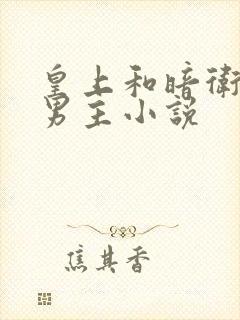 皇上和暗衛
男主小説
焦其香